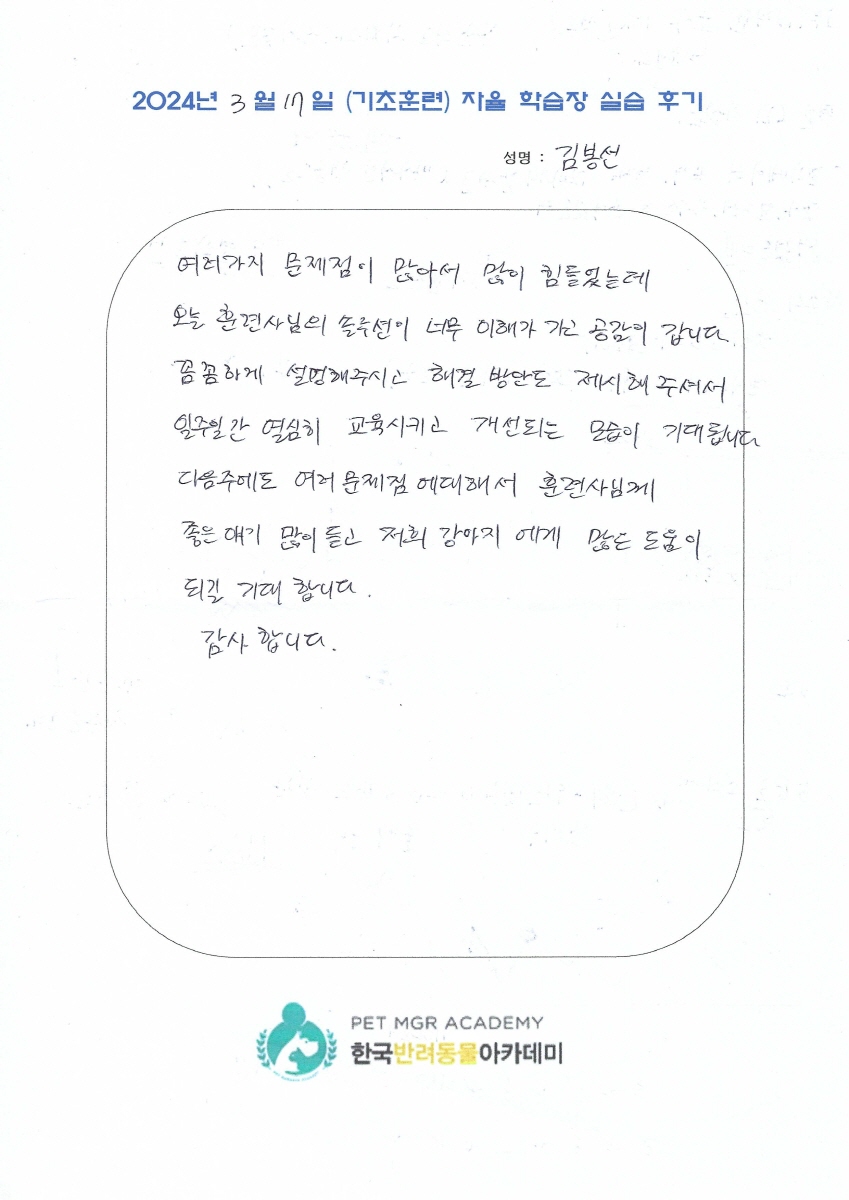 2024년 3월 17일 (기초훈련) 자율 학습장 실습 후기
성명 : 김봉선
여러가지 문제점이 많아서 많이 힘들었는데
오늘 훈련사님의 솔루션이 너무 이해가 가고 공감이 갑니다.
꼼꼼하게 설명해주시고 해결 방안도 제시해 주셔서
일주일간 열심히 교육시키고 개선되는 모습이 기대됩니다
다음주에도 여러 문제점 에대해서 훈련사님께
좋은 얘기 많이 듣고 저희 강아지 에게 많은 도움이
되길 기대 합니다.
감사 합니다.
PET MGR ACADEMY
한국반려동물아카데미